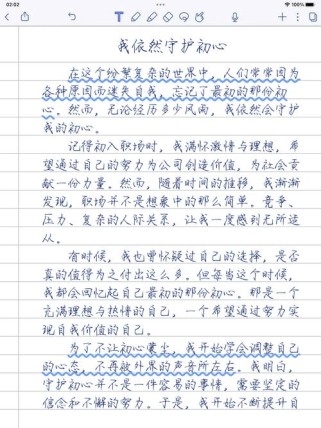 02:02
100%
我依然守护初心
在这个纷繁复杂的世界中，人们常常因为
各种原因而迷失自我，忘记了最初的那份初
心。然而，无论经历多少风雨，我依然会守护
我的初心。
记得初入职场时，我满怀激情与理想，希
望通过自己的努力为公司创造价值，为社会贡
献一份力量。然而，随着时间的推移，我渐渐
发现，职场并不是想象中的那么简单。竞争、
压力、复杂的人际关系，让我一度感到无所适
从。
有时候，我也曾怀疑过自己的选择，是否
真的值得为之付出这么多。但每当这个时候，
我都会回忆起自己最初的那份初心。那是一个
充满理想与热情的自己，一个希望通过努力实
现自我价值的自己。
为了不让初心蒙尘，我开始学会调整自己
的心态，不再被外界的声音所左右。我明白，
守护初心并不是一件容易的事情，需要坚定的
信念和不懈的努力。于是，我开始不断提升自